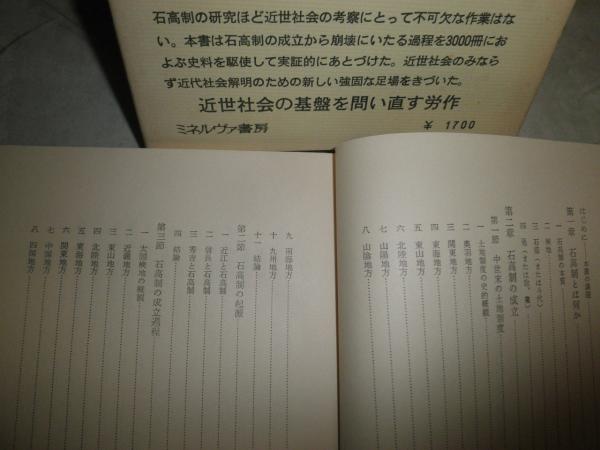 石高制の研究ほど近世社会の考察にとって不可欠な作業はな
い。本書は石高制の成立から崩壊にいたる過程を3000冊にお
よぶ史料を駆使して実証的にあとづけた。近世社会のみなら
ず近代社会解明のための新しい強固な足場をきづいた。
近世社会の基盤を問い直す労作
ミネルヴァ書房 ¥ 1700
はじめに――本書の課題
第一章 石高制とは何か
一 石高制の本質
二 検地
三 石盛(または斗代)
四 免(または取、厘)
第二章 石高制の成立
第一節 中世末の土地制度
一 土地制度の史的概観
二 奥羽地方
三 関東地方
四 東海地方
五 東山地方
六 北陸地方
七 山陽地方
八 山陰地方
九 南海地方
十 九州地方
十一 結論
第二節 石高制の起源
一 近江と石高制
二 信長と石高制
三 秀吉と石高制
四 結論
第三節 石高制の成立過程
一 太閤検地の概観
二 近畿地方
三 東山地方
四 北陸地方
五 東海地方
六 関東地方
七 中国地方
八 四国地方